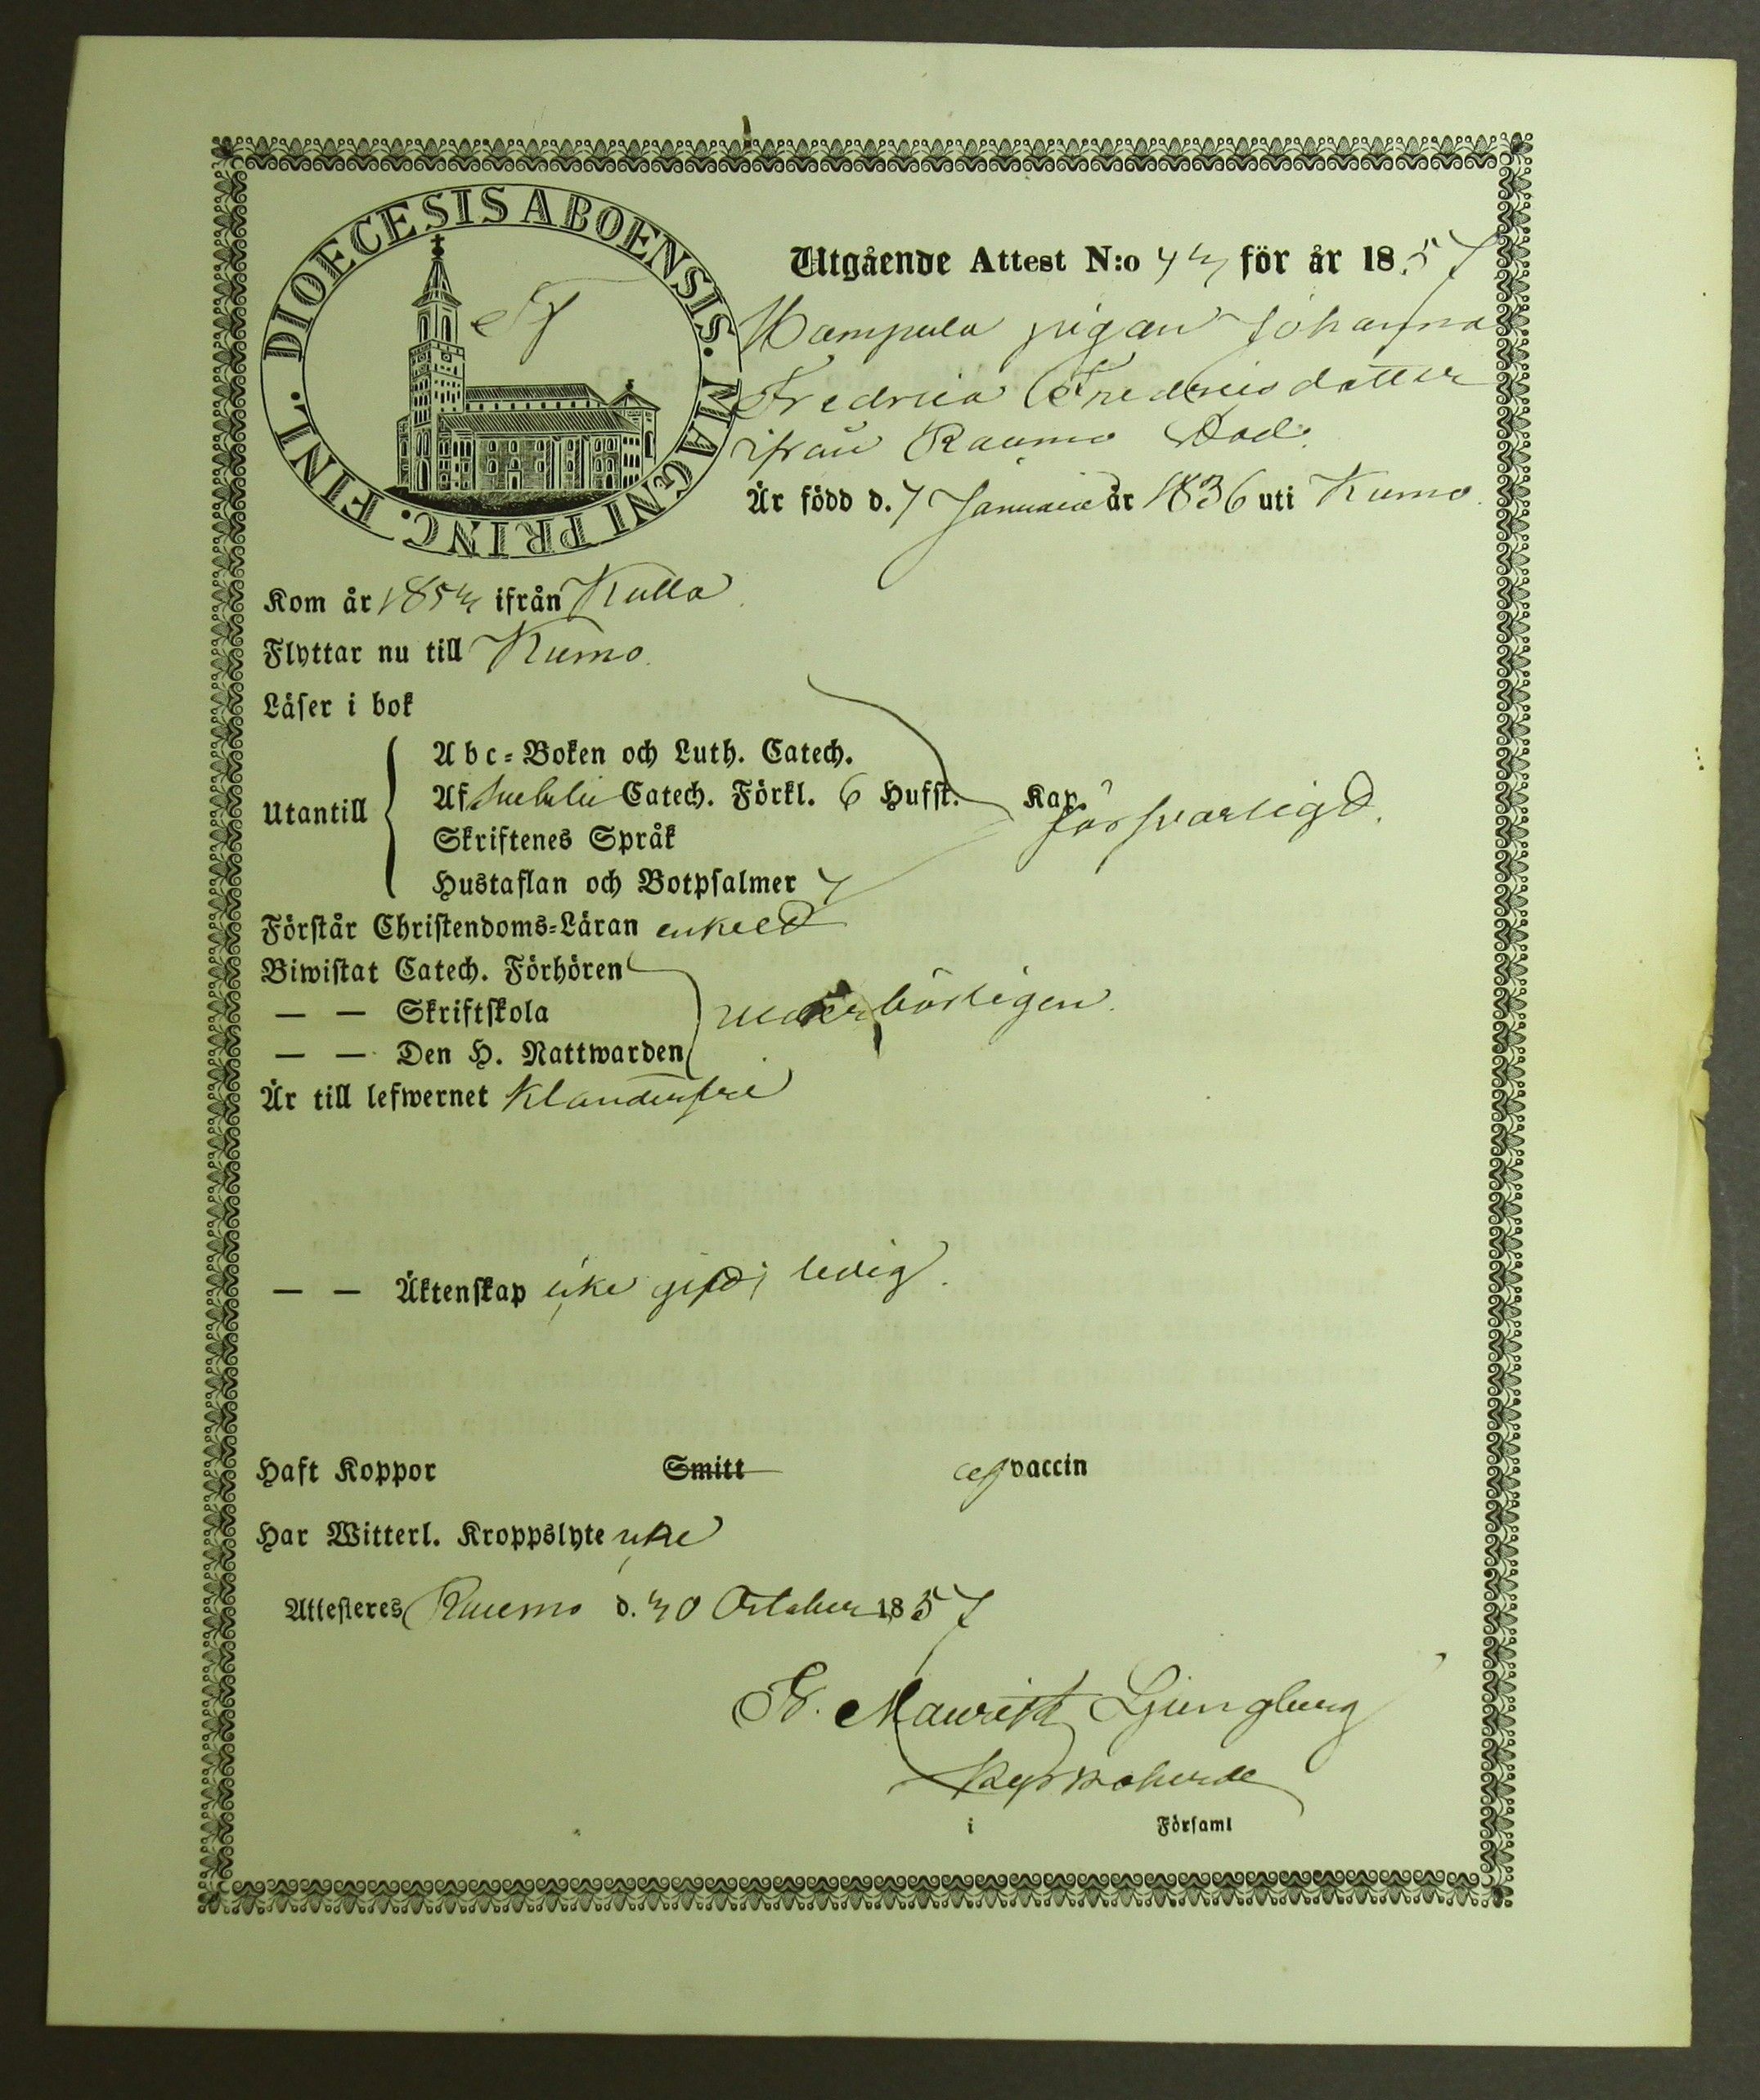 DIOECESIS ABOENSIS. MAGNI PRINC. FINL.
Utgående Attest N:o för år 1857
pigan Johanna
Fredrica Fredricsdotter
ifrån Raumo Stad.
Är född d. 7 Januarii år 1836 uti Kumo.
Kom år 185 ifrån Kulla
Flyttar nu till Kumo.
Läser i bok
Utantill
Abc-Boken och Luth. Catech.
Af Svebelii Catech. Förkl. 6 Hufst. Kap.
försvarligt.
Skriftenes Språk
Hustaflan och Botpsalmer 7
Förstår Christendoms-Läran enkelt
Biwistat Catech. Förhören
— — Skriftskola
behörigen.
— — Den H. Nattwarden
Är till lefwernet klanderfri
— — Äktenskap icke gift, ledig.
Haft Koppor Smitt af vaccin
Har Witterl. Kroppslyte icke
Attesteres Raumo d. 30 October 1857
Fr. Mauritz Ljungberg
Kyrkoherde
i Församl